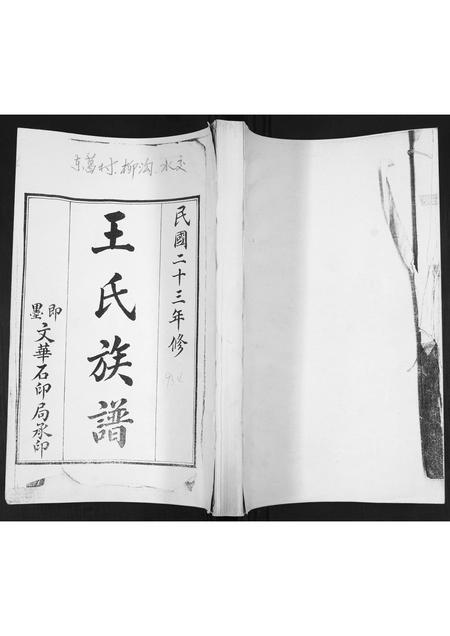 东葛村、柳沟、水交
民國二十三年修
王氏族譜
即墨文華石印局承印